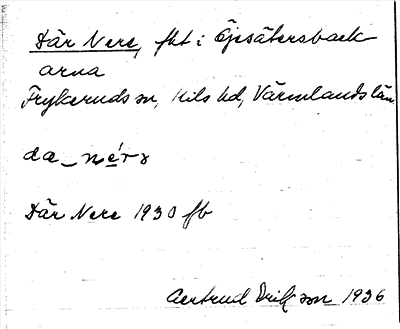 Där Nere, fkt i Öjesätersback
arna
Frykeruds sn, Kils hd, Värmlands län
da_né̱rɜ
Där Nere 1930 fb
Gertrud Erikson 1936